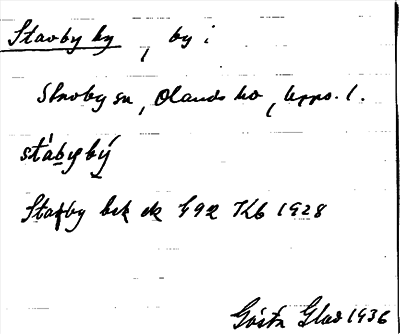 Stavby by, by i
Stavby sn, Olands hd, Upps. l.
stábybý
Stafby bek ek 492 Kb 1928
Gösta Glad 1936